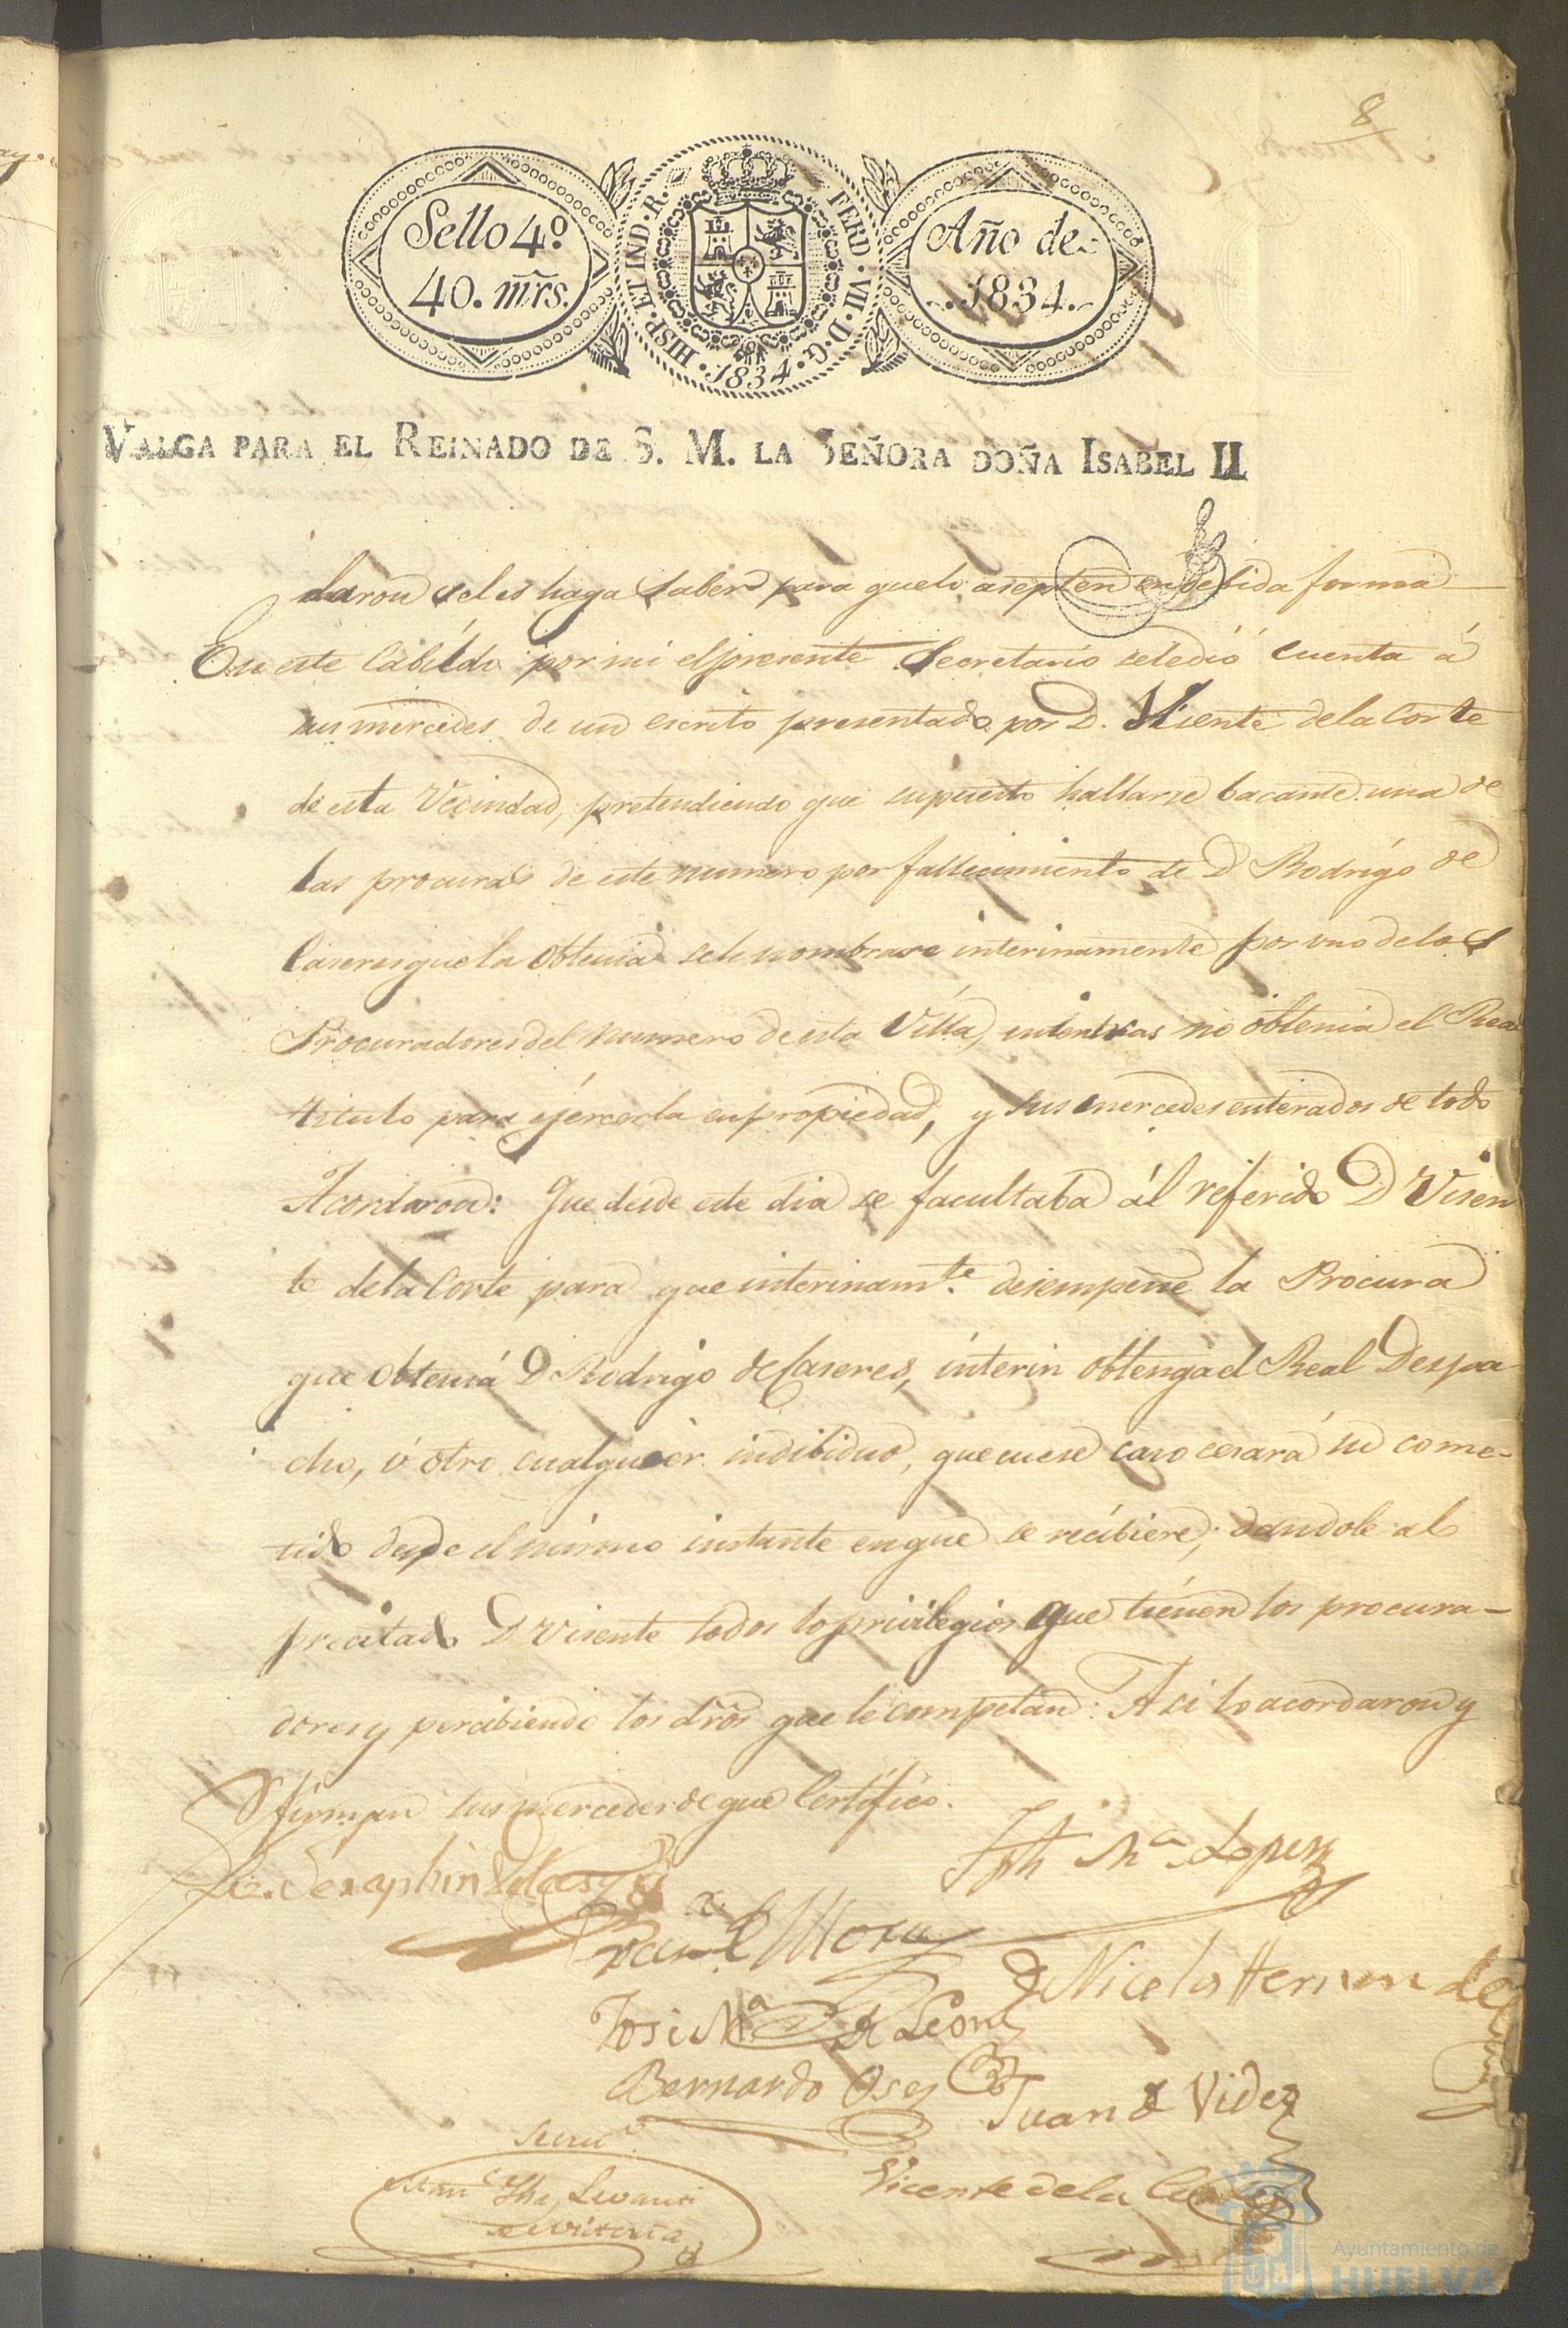 8
Sello 4º
40. mrs.
HISP. ET IND. R. FERD. VII. D. G. 1834.
Año de
1834.
VALGA PARA EL REINADO DE S. M. LA SEÑORA DOÑA ISABEL II
daron seles haga saber para quelo asepten en debida forma
En este Cabildo por mi el presente Secretario seledió cuenta á
sus mercedes de un escrito presentado por D. Visente dela Corte
de esta Vecindad, pretendiendo que supuesto hallarse bacante una de
las procuras de este numero por fallecimiento de D Rodrigo de
Caseres que la obtenia sele nombrase interinamente por uno delos
Procuradores del numero de esta Villa, interin no obtenia el Real
titulo para ejercerla en propiedad, y sus mercedes enterados de todo
Acordaron: Que desde este dia se facultaba ál referido D Visen
te dela Corte para que interinamte. desempeñe la Procura
que obtenia D Rodrigo de Caseres, interin obtenga el Real Despa
cho, ú otro cualquier indibiduo, que en ese caso cesará su come-
tido desde el mismo instante en que se recibiere; dandole al
precitado D Visente todos lo privilegios que tienen los procura-
dores y percibiendo los dros que le competan: Asi lo acordaron y
firman sus mercedes de que Certifico.
Lic. Seraphin
Jph Ma. Lopez
Mora
Nicolas Hernandez
José Ma de Leon
Bernardo Oses
Juan de Vides
Vicente de la Corte
Ayuntamiento de
HUELVA